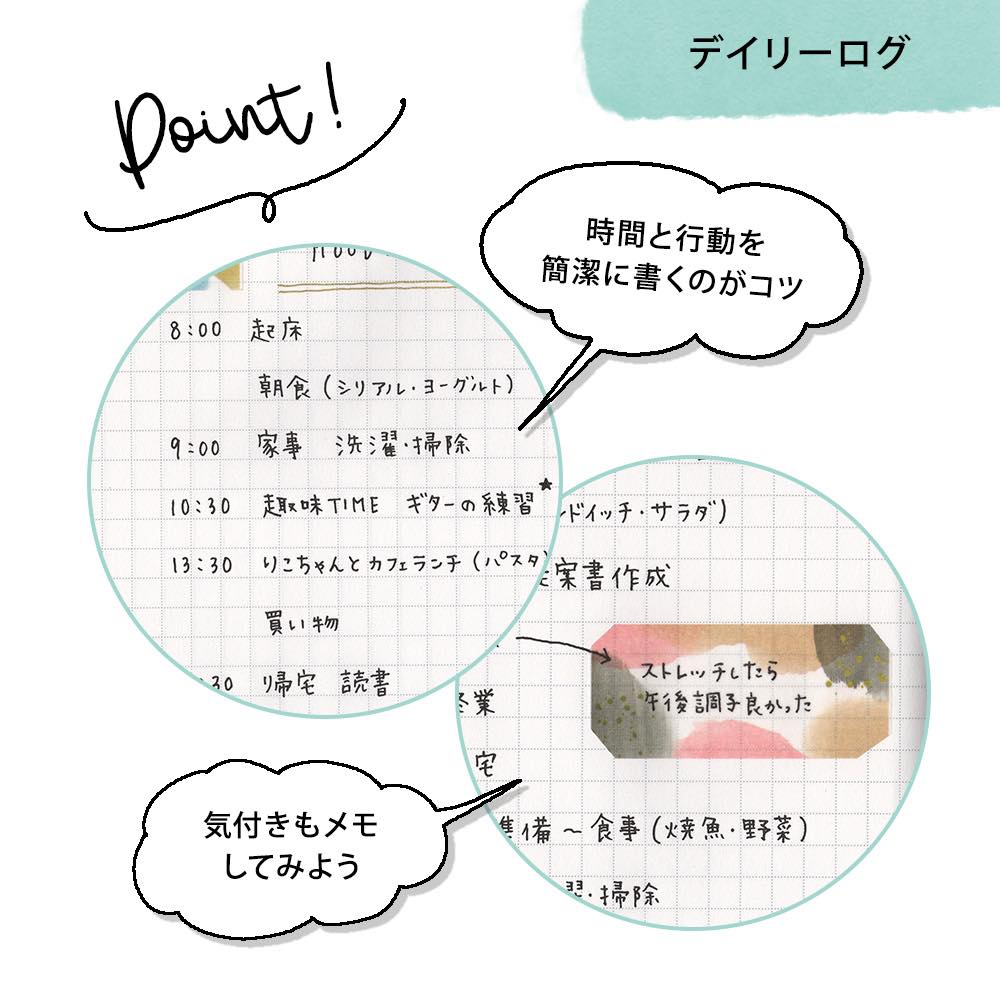 デイリーログ
Point!
時間と行動を
簡潔に書くのがコツ
8:00 起床
朝食(シリアル・ヨーグルト)
9:00 家事 洗濯・掃除
10:30 趣味TIME ギターの練習★
13:30 りこちゃんとカフェランチ(パスタ)
買い物
:30 帰宅 読書
ドイッチ・サラダ)
案書作成
ストレッチしたら
午後調子良かった
業
宅
準備~食事(焼魚・野菜)
濯・掃除
気付きもメモ
してみよう